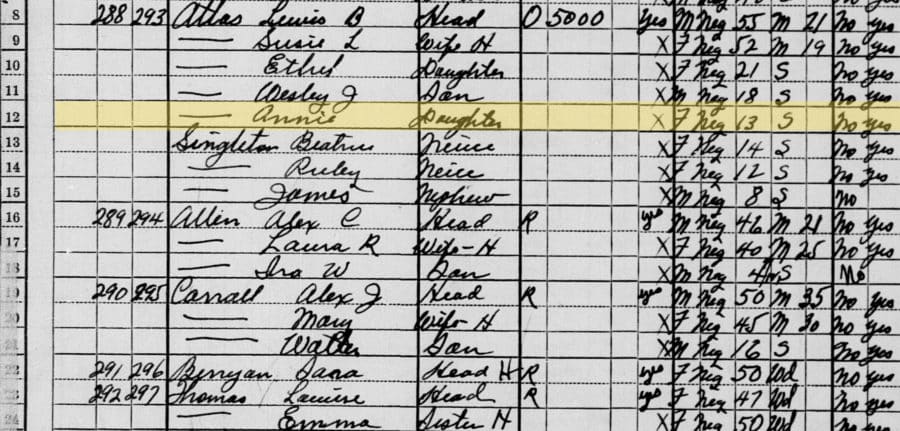 8 288 293 Atlas Lewis B Head O 5000 yes M Neg 55 M 21 no yes
9 — Susie L Wife H X F Neg 52 M 19 no yes
10 — Ethel Daughter X F Neg 21 S no yes
11 — Wesley J Son X M Neg 18 S no yes
12 — Annie Daughter X F Neg 13 S no yes
13 Singleton Beatrice Neice X F Neg 14 S no yes
14 — Ruby Neice X F Neg 12 S no yes
15 — James Nephew X M Neg 8 S no
16 289 294 Allen Alex C Head R yes M Neg 46 M 21 no yes
17 — Laura R Wife-H X F Neg 40 M 25 no yes
18 — Ira W Son X M Neg S No
19 290 295 Carrall Alex J Head R yes M Neg 50 M 35 no yes
20 — Mary Wife H X F Neg 45 M 30 no yes
21 — Walter Son X M Neg 16 S no yes
22 291 296 Head H R yes F Neg 50 Wd no yes
23 292 297 Thomas Louise Head R yes F Neg 47 Wd no yes
24 — Emma Sister H X F Neg 50 Wd no yes